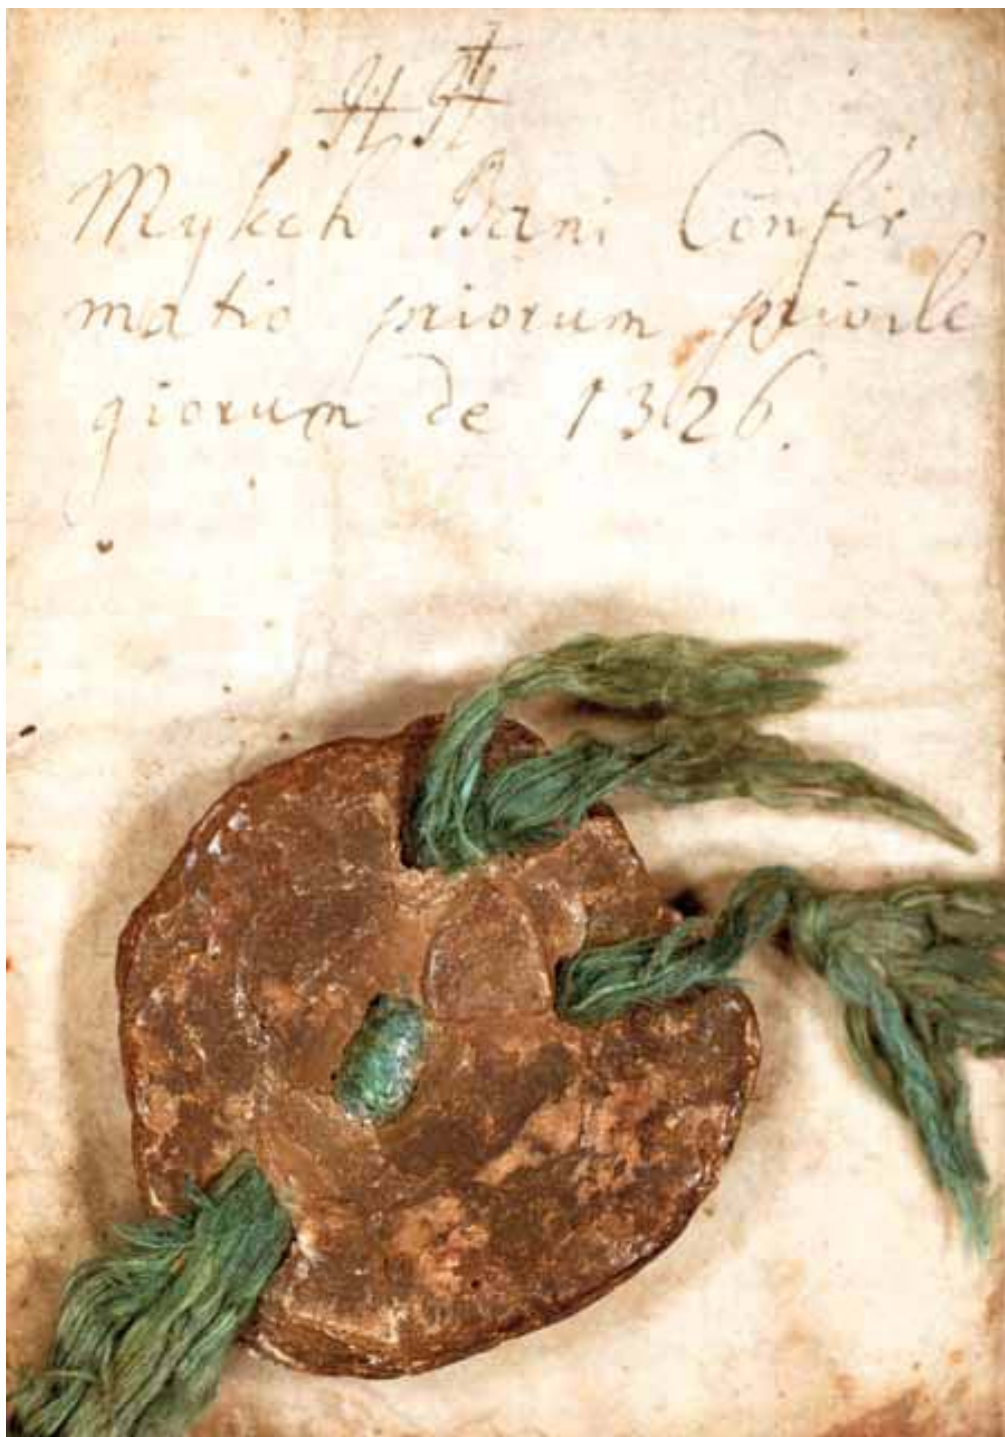 Mykch Bani Confir
matio priorum privile
giorum de 1326.